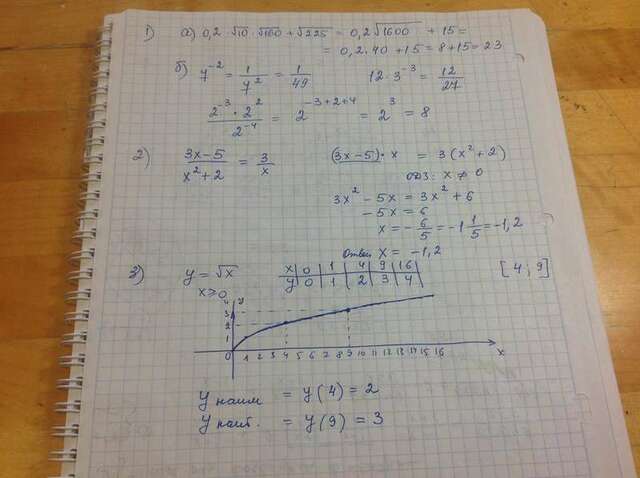 1) а) 0,2·√10·√160 + √225 = 0,2√1600 + 15 =
= 0,2·40 + 15 = 8 + 15 = 23
б) 7⁻² = 1/7² = 1/49    12·3⁻³ = 12/27
2⁻³ · 2²/2⁻⁴ = 2⁻³⁺²⁺⁴ = 2³ = 8
2) 3x-5/x²+2 = 3/x    (3x-5)·x = 3(x²+2)
ОДЗ: x ≠ 0
3x² - 5x = 3x² + 6
-5x = 6
x = -6/5 = -1 1/5 = -1,2
Ответ x = -1,2
3) y = √x    x 0 1 4 9 16    [4; 9]
x ⩾ 0    y 0 1 2 3 4
y
4
3
2
1
0 1 2 3 4 5 6 7 8 9 10 11 12 13 14 15 16 x
y наим = y(4) = 2
y наиб. = y(9) = 3